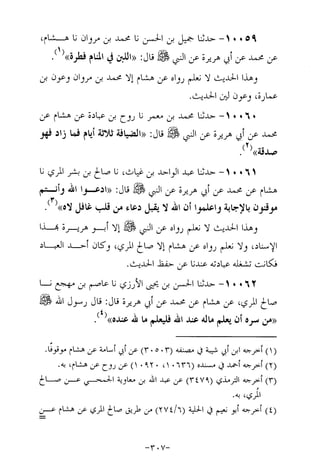 ١٠٠٥٩- حدثنا جميل بن الحسن نا محمد بن مروان نا هـــشام،
عن محمد عن أبي هريرة عن النبي ﷺ قال: «اللبن في المنام فطرة»(١).
وهذا الحديث لا نعلم رواه عن هشام إلا محمد بن مروان وعون بن
عمارة، وعون لين الحديث.
١٠٠٦٠- حدثنا محمد بن معمر نا روح بن عبادة عن هشام عن
محمد عن أبي هريرة عن النبي ﷺ قال: «الضيافة ثلاثة أيام فما زاد فهو
صدقة»(٢).
١٠٠٦١- حدثنا عبد الواحد بن غياث، نا صالح بن بشر المري نا
هشام عن محمد عن أبي هريرة عن النبي ﷺ قال: «ادعـــوا الله وأنـــتم
موقنون بالإجابة واعلموا أن الله لا يقبل دعاء من قلب غافل لاه»(٣).
وهذا الحديث لا نعلم رواه عن النبي ﷺ إلا أبـــو هريـــرة بهـــذا
الإسناد، ولا نعلم رواه عن هشام إلا صالح المري، وكان أحـــد العبـــاد
فكانت تشغله عبادته عندنا عن حفظ الحديث.
١٠٠٦٢- حدثنا الحسن بن يحيى الأرزي نا عاصم بن مهجع نـــا
صالح المري، عن هشام عن محمد عن أبي هريرة قال: قال رسول الله ﷺ
«من سره أن يعلم ماله عند الله فليعلم ما لله عنده»(٤).
(١) أخرجه ابن أبي شيبة في مصنفه (٣٠٥٠٣) عن أبي أسامة عن هشام موقوفًا.
(٢) أخرجه أحمد في مسنده (١٠٦٣٦، ١٠٩٢٠) عن روح عن هشام، به.
(٣) أخرجه الترمذي (٣٤٧٩) عن عبد الله بن معاوية الجمحـــي عـــن صـــالح
المُري، به.
(٤) أخرجه أبو نعيم في الحلية (٢٧٤/٦) من طريق صالح المري عن هشام عـــن
=
-٣٠٧-